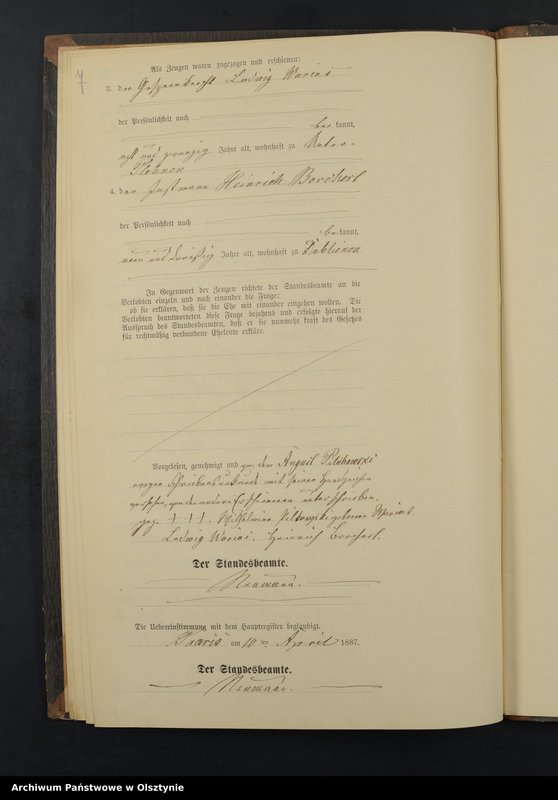 7
Als Zeugen waren zugezogen und erschienen:
3. der Gespannknecht Ludwig Warias
der Persönlichkeit nach
be kannt,
acht und zwanzig Jahre alt, wohnhaft zu Unter-
Plehnen
4. der Instmann Heinrich Borchert
der Persönlichkeit nach
be kannt,
neun und dreißig Jahre alt, wohnhaft zu Dublienen
In Gegenwart der Zeugen richtete der Standesbeamte an die
Verlobten einzeln und nach einander die Frage:
ob sie erklären, daß sie die Ehe mit einander eingehen wollen. Die
Verlobten beantworteten diese Frage bejahend und erfolgte hierauf der
Ausspruch des Standesbeamten, daß er sie nunmehr kraft des Gesetzes
für rechtmäßig verbundene Eheleute erkläre.
Vorgelesen, genehmigt und von dem August Pilchowski
wegen Schreibensunkunde mit seinem Handzeichen
versehen, von den anderen Erschienenen unterschrieben.
gez. +++. Wilhelmine geborene Warias.
Ludwig Warias. Heinrich Borchert.
Der Standesbeamte.
Neumann.
Die Uebereinstimmung mit dem Hauptregister beglaubigt.
am 10 ten April 1887.
Der Standesbeamte.
Neumann.
Archiwum Państwowe w Olsztynie